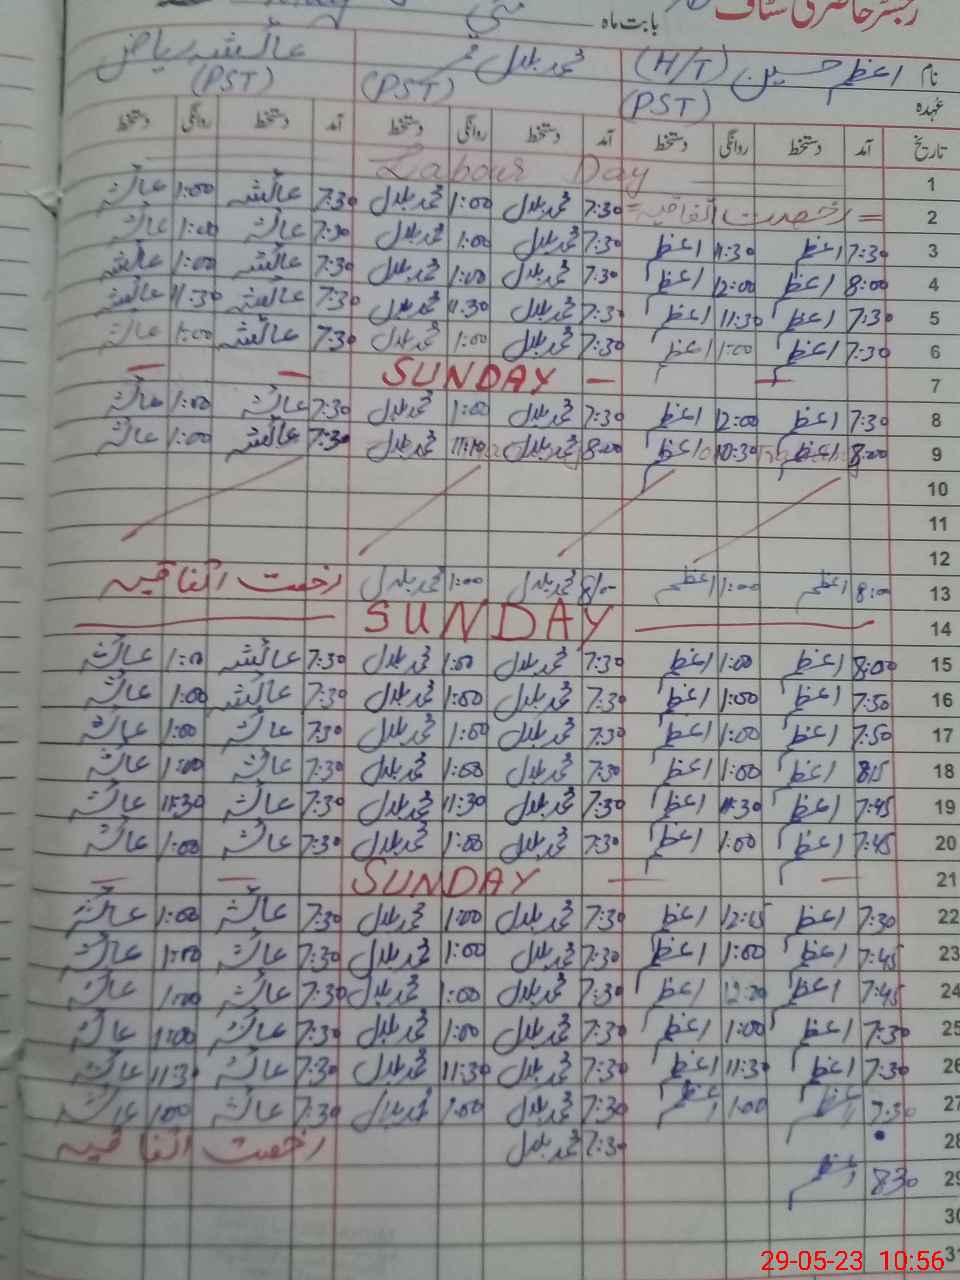 رجسٹر حاضری سٹاف
بابت ماہ مئی
نام اعظم حسین (H/T) محمد بلال عائشہ ریاض
عہدہ (PST) (PST) (PST)
تاریخ آمد دستخط روانگی دستخط آمد دستخط روانگی دستخط آمد دستخط روانگی دستخط
1 Labour Day
2 = رخصت اتفاقیہ = 7:30 محمد بلال 1:00 محمد بلال 7:30 عائشہ 1:00 عائشہ
3 7:30 اعظم 11:30 اعظم 7:30 محمد بلال 1:00 محمد بلال 7:30 عائشہ 1:00 عائشہ
4 8:00 اعظم 12:00 اعظم 7:30 محمد بلال 1:00 محمد بلال 7:30 عائشہ 1:00 عائشہ
5 7:30 اعظم 11:30 اعظم 7:30 محمد بلال 11:30 محمد بلال 7:30 عائشہ 11:30 عائشہ
6 7:30 اعظم 1:00 اعظم 7:30 محمد بلال 1:00 محمد بلال 7:30 عائشہ 1:00 عائشہ
7 — SUNDAY — — —
8 7:30 اعظم 12:00 اعظم 7:30 محمد بلال 1:00 محمد بلال 7:30 عائشہ 1:00 عائشہ
9 8:00 اعظم 10:30 اعظم 8:00 محمد بلال محمد بلال 7:30 عائشہ 1:00 عائشہ
10
11
12
13 8:00 اعظم 1:00 اعظم 8/00 محمد بلال 1:00 محمد بلال رخصت اتفاقیہ
14 SUNDAY
15 8:00 اعظم 1:00 اعظم 7:30 محمد بلال 1:00 محمد بلال 7:30 عائشہ 1:00 عائشہ
16 7:50 اعظم 1:00 اعظم 7:30 محمد بلال 1:00 محمد بلال 7:30 عائشہ 1:00 عائشہ
17 7:50 اعظم 1:00 اعظم 7:30 محمد بلال 1:00 محمد بلال 7:30 عائشہ 1:00 عائشہ
18 815 اعظم 1:00 اعظم 7:30 محمد بلال 1:00 محمد بلال 7:30 عائشہ 1:00 عائشہ
19 7:45 اعظم 11:30 اعظم 7:30 محمد بلال 11:30 محمد بلال 7:30 عائشہ 11:30 عائشہ
20 7:45 اعظم 1:00 اعظم 7:30 محمد بلال 1:00 محمد بلال 7:30 عائشہ 1:00 عائشہ
21 — — SUNDAY — —
22 7:30 اعظم 12:15 اعظم 7:30 محمد بلال 1:00 محمد بلال 7:30 عائشہ 1:00 عائشہ
23 7:45 اعظم 1:00 اعظم 7:30 محمد بلال 1:00 محمد بلال 7:30 عائشہ 1:00 عائشہ
24 7:45 اعظم 12:30 اعظم 7:30 محمد بلال 1:00 محمد بلال 7:30 عائشہ 1:00 عائشہ
25 7:30 اعظم 1:00 اعظم 7:30 محمد بلال 1:00 محمد بلال 7:30 عائشہ 1:00 عائشہ
26 7:30 اعظم 11:30 اعظم 7:30 محمد بلال 11:30 محمد بلال 7:30 عائشہ 11:30 عائشہ
27 7:30 اعظم 1:00 اعظم 7:30 محمد بلال 1:00 محمد بلال 7:30 عائشہ 1:00 عائشہ
28 7:30 محمد بلال رخصت اتفاقیہ
29 830 اعظم
30
31
29-05-23 10:56